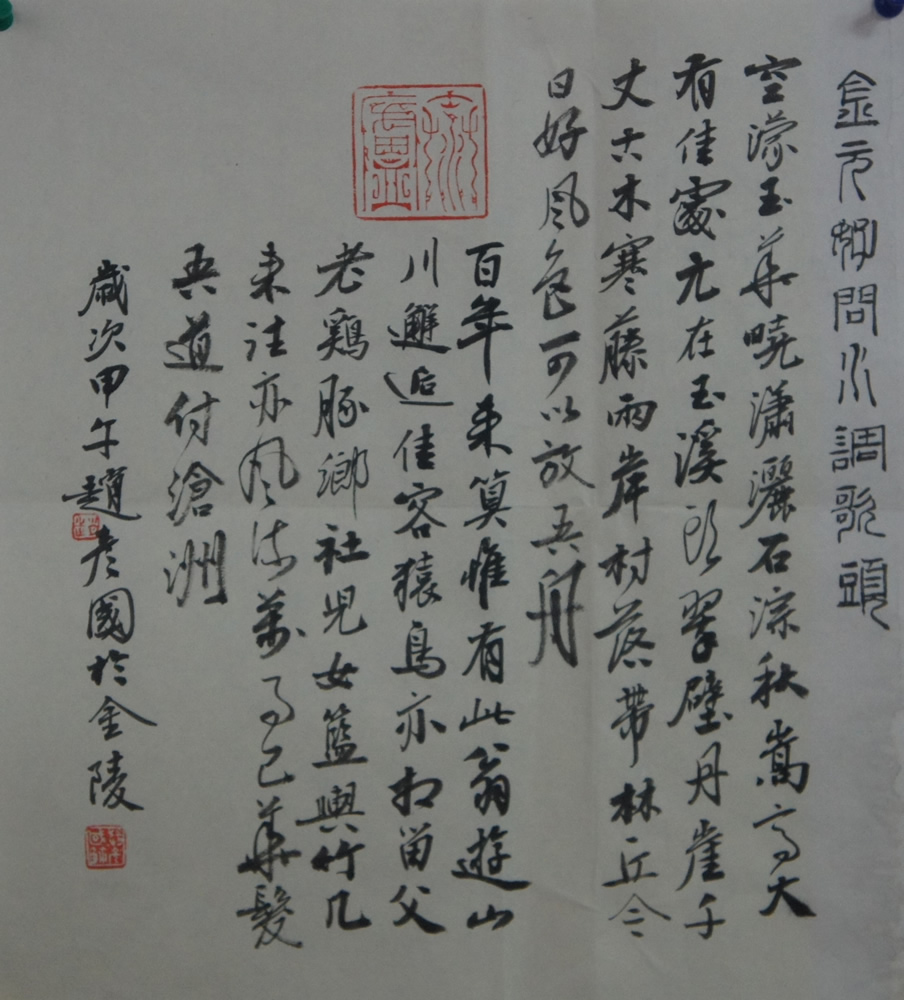 金元好問水調歌頭
空濛玉華曉瀟灑石淙秋嵩高大
有佳處元在玉溪頭翠壁丹崖千
丈古木寒藤兩岸村落帶林丘今
日好風色可以放吾舟
百年來算惟有此翁遊山
川邂逅佳客猿鳥亦相留父
老鷄豚鄉社兒女籃輿竹几
來往亦風流萬事已華髮
吾道付滄洲
歲次甲午趙彥國於金陵